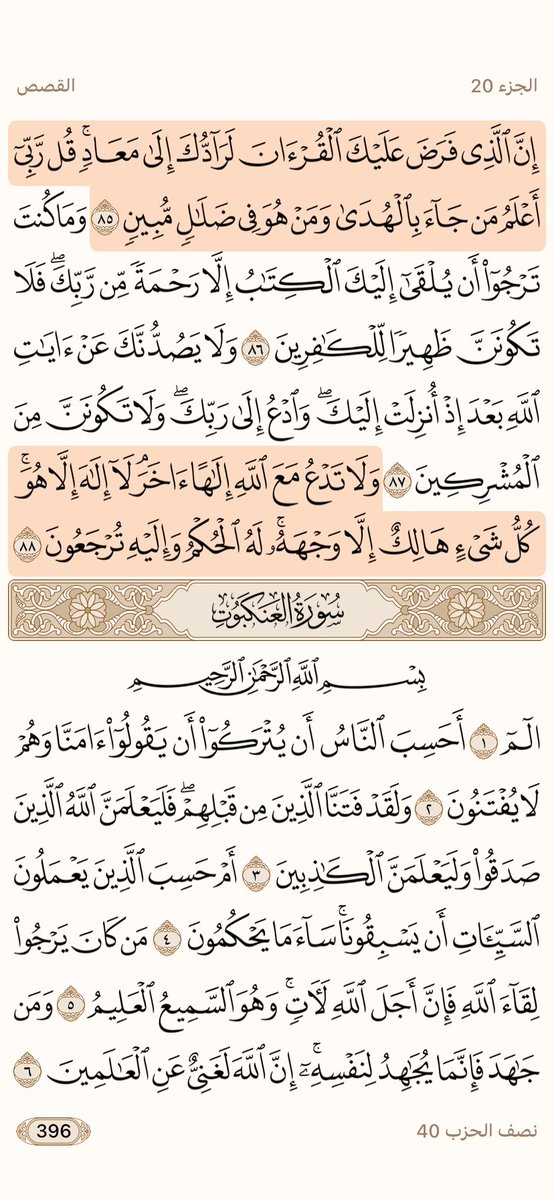 الجزء 20
القصص
إِنَّ ٱلَّذِى فَرَضَ عَلَيْكَ ٱلْقُرْءَانَ لَرَآدُّكَ إِلَىٰ مَعَادٍۢ ۚ قُل رَّبِّىٓ
أَعْلَمُ مَن جَآءَ بِٱلْهُدَىٰ وَمَنْ هُوَ فِى ضَلَـٰلٍۢ مُّبِينٍۢ ٨٥ وَمَا كُنتَ
تَرْجُوٓا۟ أَن يُلْقَىٰٓ إِلَيْكَ ٱلْكِتَـٰبُ إِلَّا رَحْمَةًۭ مِّن رَّبِّكَ ۖ فَلَا
تَكُونَنَّ ظَهِيرًۭا لِّلْكَـٰفِرِينَ ٨٦ وَلَا يَصُدُّنَّكَ عَنْ ءَايَـٰتِ
ٱللَّهِ بَعْدَ إِذْ أُنزِلَتْ إِلَيْكَ ۖ وَٱدْعُ إِلَىٰ رَبِّكَ ۖ وَلَا تَكُونَنَّ مِنَ
ٱلْمُشْرِكِينَ ٨٧ وَلَا تَدْعُ مَعَ ٱللَّهِ إِلَـٰهًا ءَاخَرَ ۘ لَآ إِلَـٰهَ إِلَّا هُوَ ۚ
كُلُّ شَىْءٍ هَالِكٌ إِلَّا وَجْهَهُۥ ۚ لَهُ ٱلْحُكْمُ وَإِلَيْهِ تُرْجَعُونَ ٨٨
سُورَةُ العَنكَبُوتِ
بِسْمِ ٱللَّهِ ٱلرَّحْمَـٰنِ ٱلرَّحِيمِ
الٓمٓ ١ أَحَسِبَ ٱلنَّاسُ أَن يُتْرَكُوٓا۟ أَن يَقُولُوٓا۟ ءَامَنَّا وَهُمْ
لَا يُفْتَنُونَ ٢ وَلَقَدْ فَتَنَّا ٱلَّذِينَ مِن قَبْلِهِمْ ۖ فَلَيَعْلَمَنَّ ٱللَّهُ ٱلَّذِينَ
صَدَقُوا۟ وَلَيَعْلَمَنَّ ٱلْكَـٰذِبِينَ ٣ أَمْ حَسِبَ ٱلَّذِينَ يَعْمَلُونَ
ٱلسَّيِّـَٔاتِ أَن يَسْبِقُونَا ۚ سَآءَ مَا يَحْكُمُونَ ٤ مَن كَانَ يَرْجُوا۟
لِقَآءَ ٱللَّهِ فَإِنَّ أَجَلَ ٱللَّهِ لَـَٔاتٍۢ ۚ وَهُوَ ٱلسَّمِيعُ ٱلْعَلِيمُ ٥ وَمَن
جَـٰهَدَ فَإِنَّمَا يُجَـٰهِدُ لِنَفْسِهِۦٓ ۚ إِنَّ ٱللَّهَ لَغَنِىٌّ عَنِ ٱلْعَـٰلَمِينَ ٦
نصف الحزب 40
396